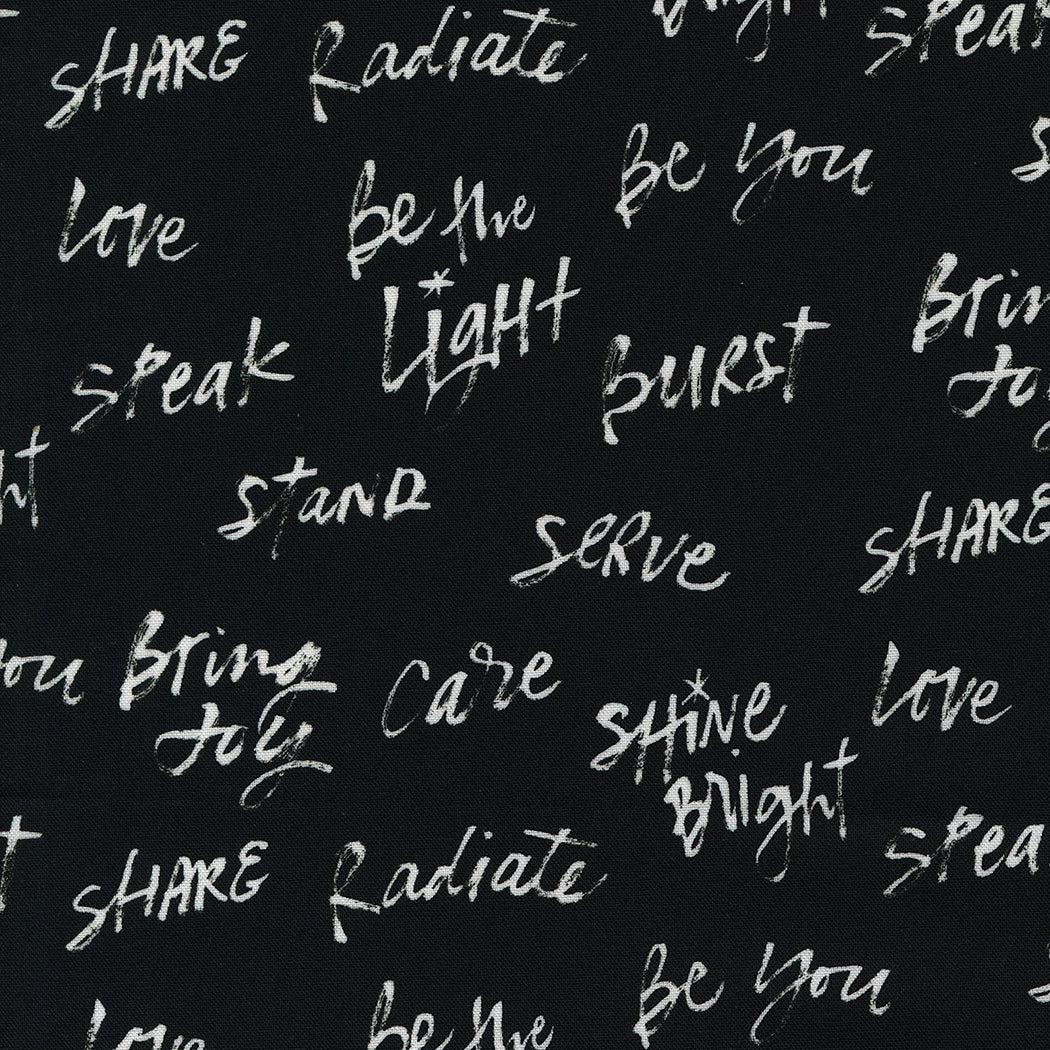 SHARE Radiate Bright Speak
Love Be the Light Be You
Speak BURST Bring Joy
StAND SERVE SHARE
you Bring Joy Care SHINE BRIGht Love
SHARE Radiate Spea
Love Be the Be You